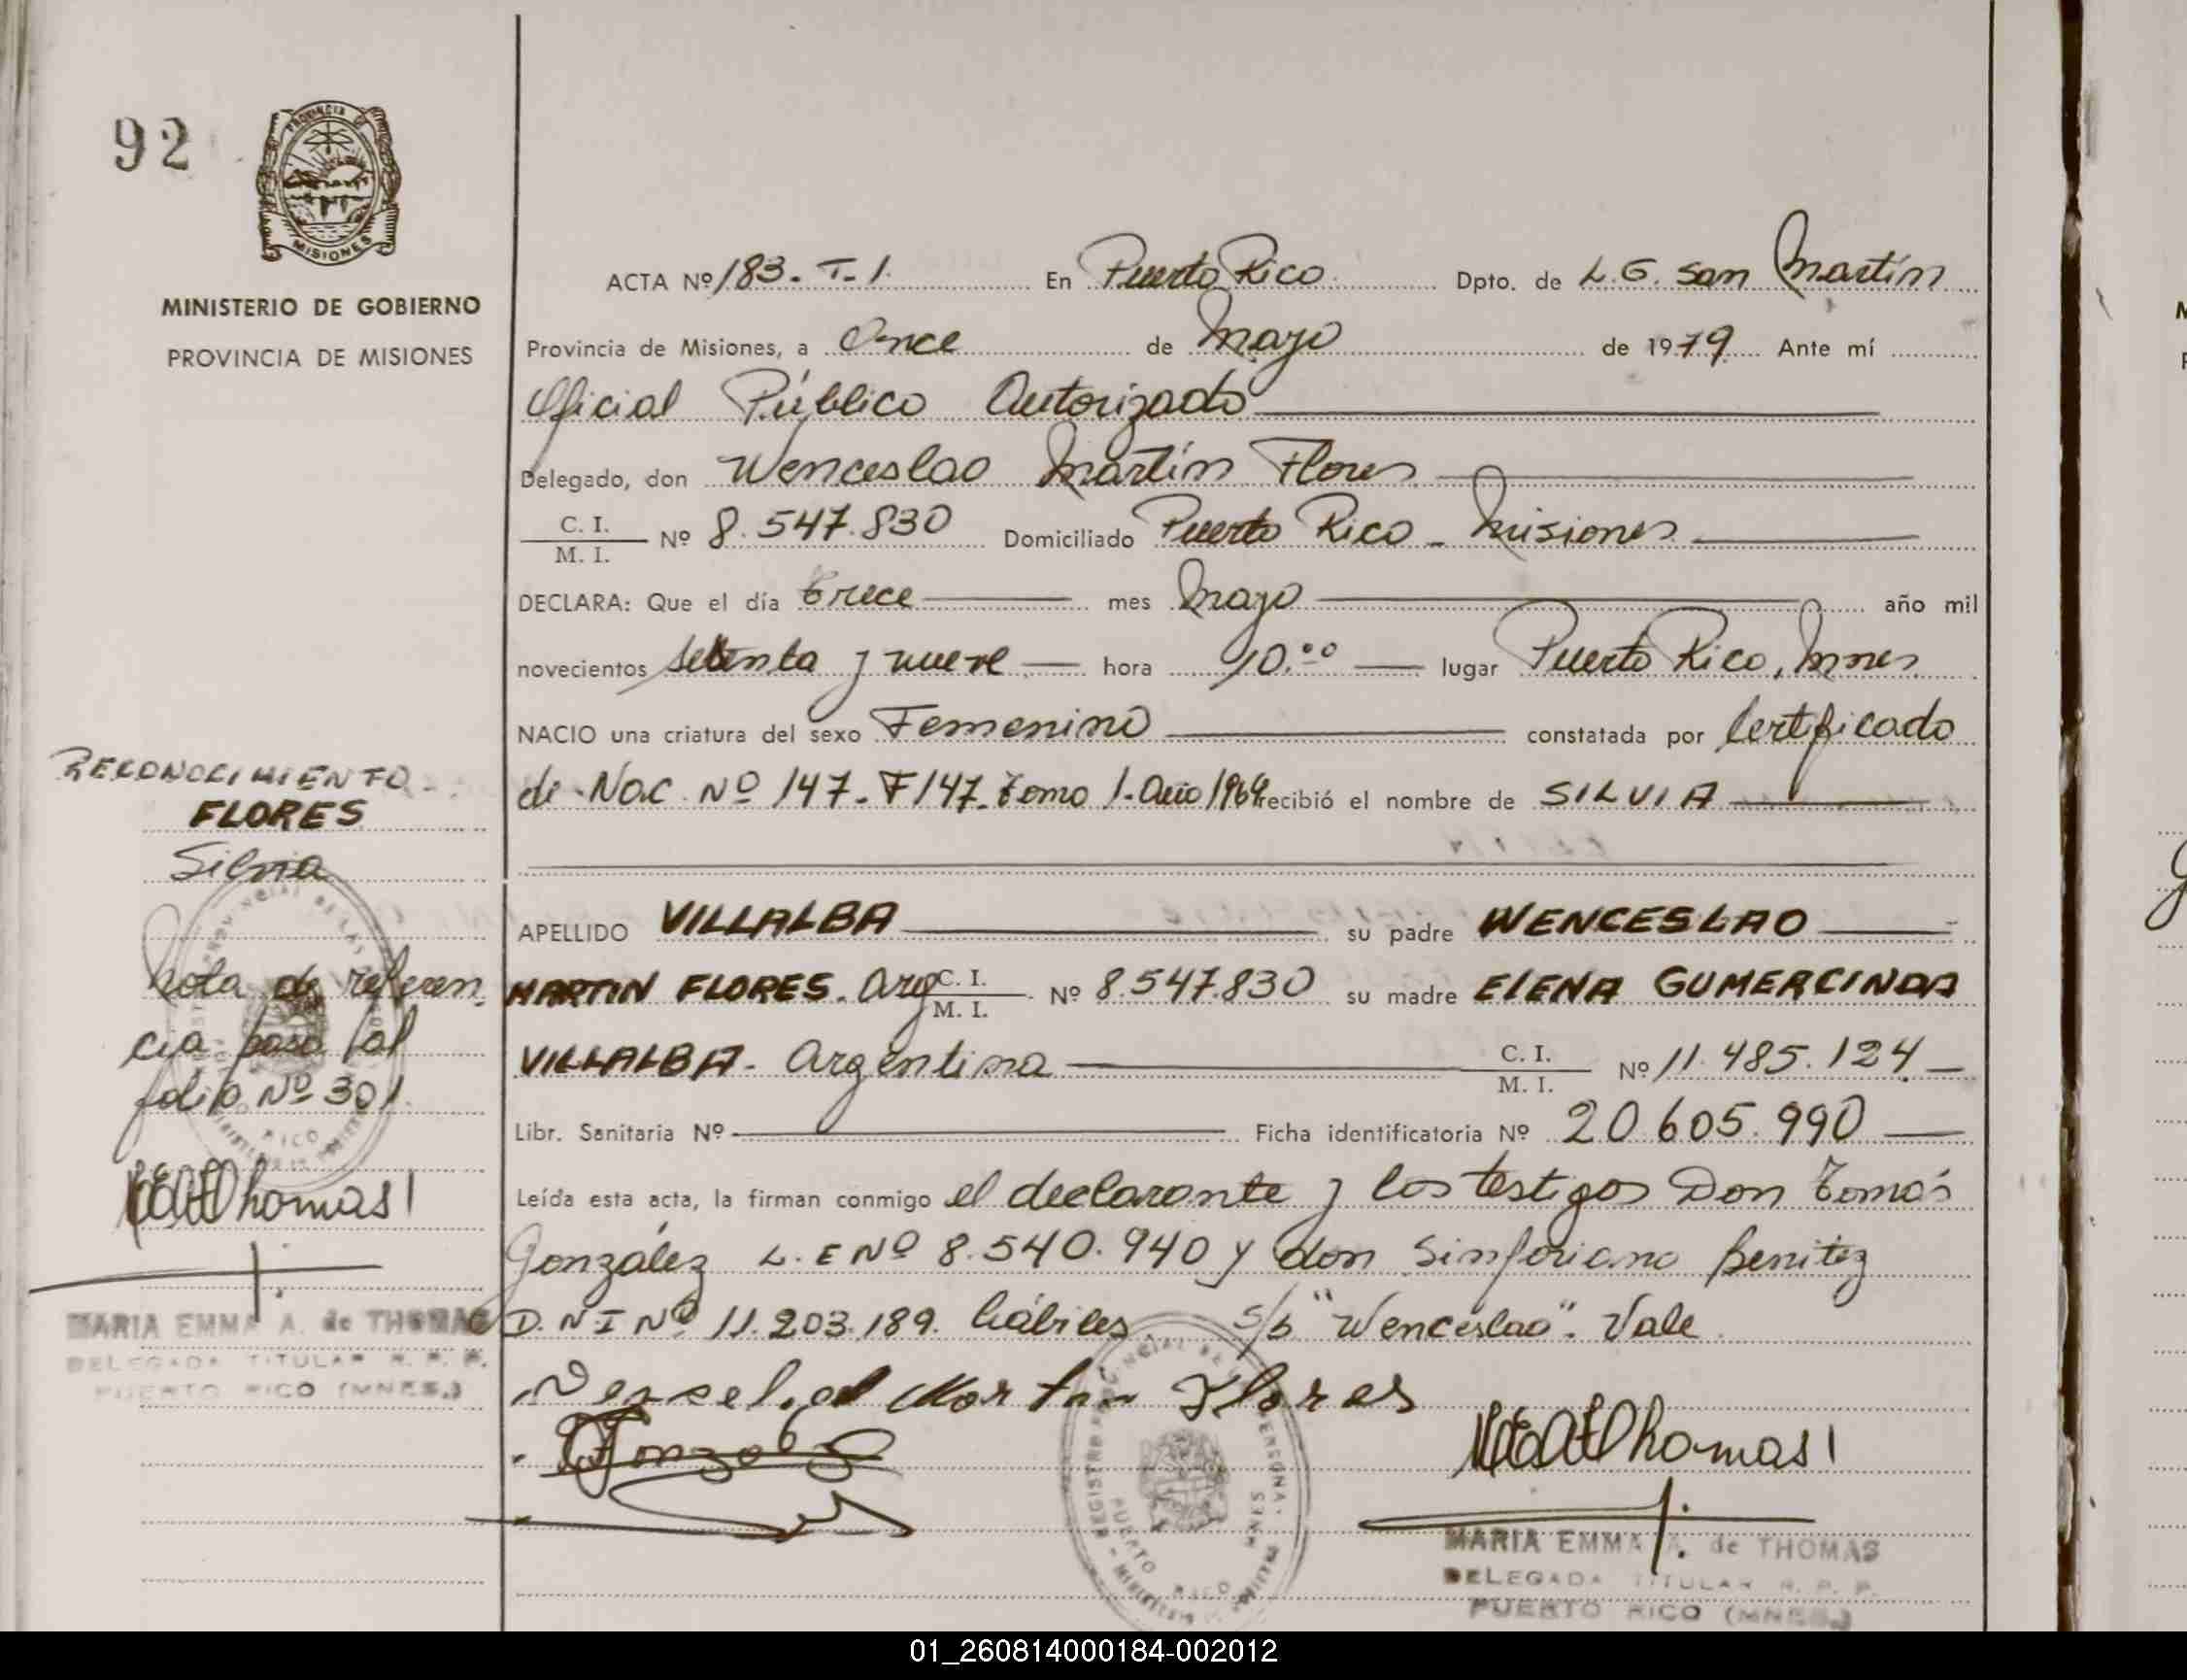 92
PROVINCIA DE
MISIONES
MINISTERIO DE GOBIERNO
PROVINCIA DE MISIONES
ACTA Nº 183. T. 1. En Puerto Rico Dpto. de L.G. San Martín
Provincia de Misiones, a Once de Mayo de 1979. Ante mí
Oficial Público Autorizado
Delegado, don Wenceslao Martín Flores
C. I. / M. I. Nº 8.547.830 Domiciliado Puerto Rico - Misiones
DECLARA: Que el día trece mes Mayo año mil
novecientos setenta y nueve hora 10.00 lugar Puerto Rico, Mnes
NACIO una criatura del sexo Femenino constatada por Certificado
de Nac. Nº 147. F 147. Tomo 1. Año 1969 recibió el nombre de SILVIA
APELLIDO VILLALBA su padre WENCESLAO
MARTIN FLORES. Arg C. I. / M. I. Nº 8.547.830 su madre ELENA GUMERCINDA
VILLALBA. Argentina C. I. / M. I. Nº 11.485.124
Libr. Sanitaria Nº Ficha identificatoria Nº 20.605.990
Leída esta acta, la firman conmigo el declarante y los testigos Don Tomás
González L. E Nº 8.540.940 y don Sinforiano Benitez
D. N I Nº 11.203.189. hábiles S/b "Wenceslao". Vale
Martin Flores
MARIA EMMA A. de THOMAS
DELEGADA TITULAR R. P. P.
PUERTO RICO (MNES.)
RECONOCIMIENTO
FLORES
Silvia
Nota de referen
cia pasa al
folio Nº 301.
MARIA EMMA A. de THOMAS
DELEGADA TITULAR R. P. P.
PUERTO RICO (MNES.)
01_260814000184-002012